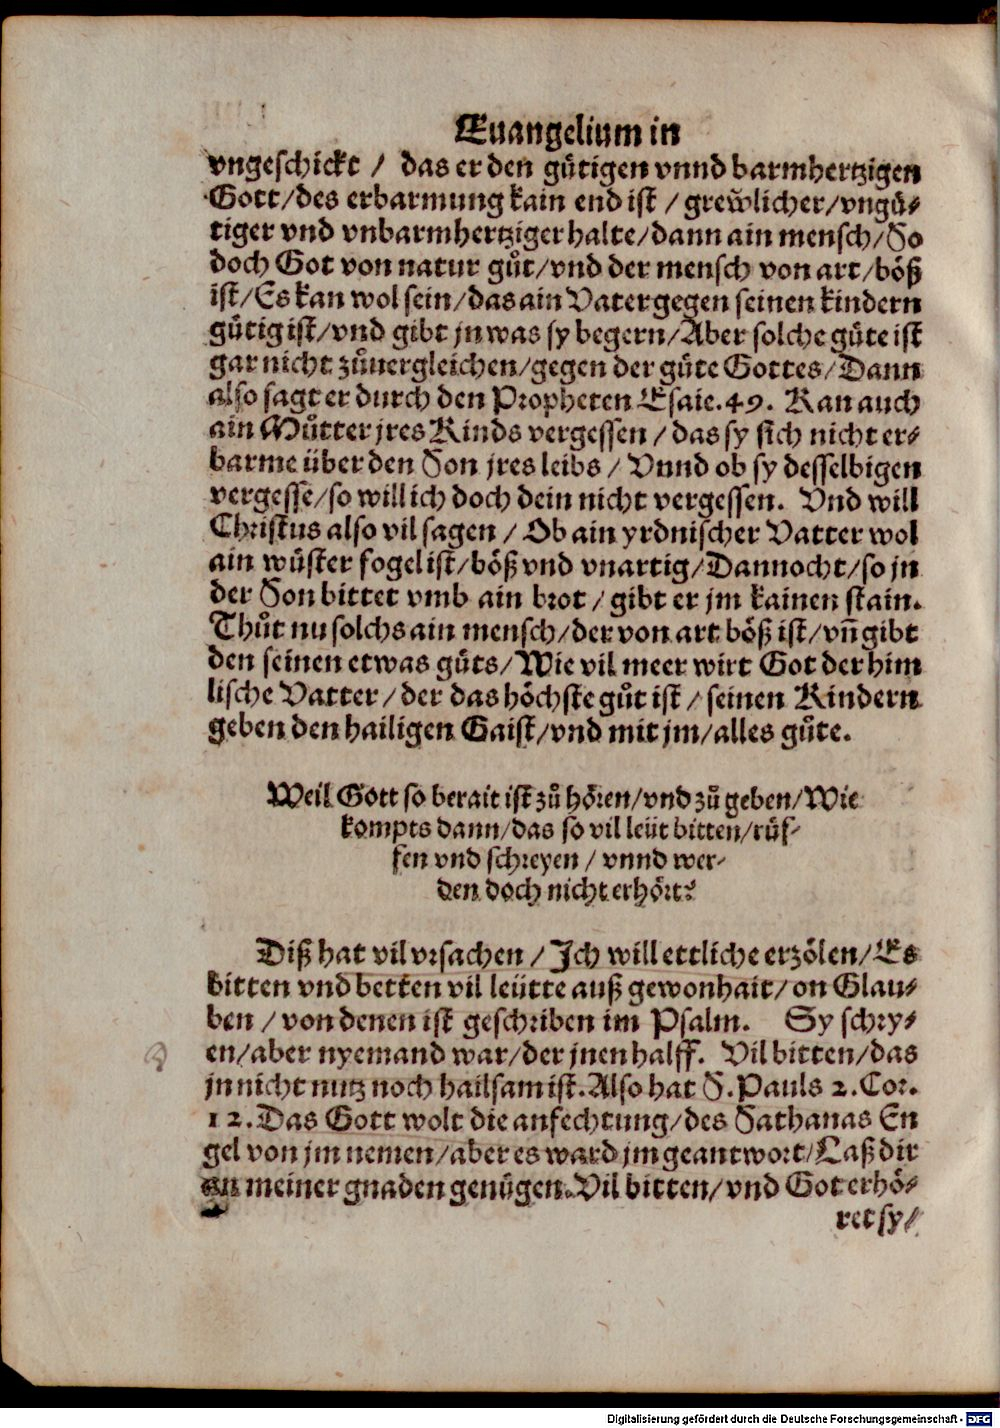 Euangelium in
vngeschickt / das er den gütigen vnnd barmhertzigen
Gott/des erbarmung kain end ist / grewlicher/vngü-
tiger vnd vnbarmhertziger halte/dann ain mensch/So
doch Got von natur gůt/vnd der mensch von art/böß
ist/Es kan wol sein/das ain Vater gegen seinen kindern
gütig ist/vnd gibt jn was sy begern/Aber solche güte ist
gar nicht zůuergleichen/gegen der güte Gottes/Dann
also sagt er durch den Propheten Esaie.49. Kan auch
ain Můtter jres Kinds vergessen / das sy sich nicht er-
barme über den Son jres leibs / Vnnd ob sy desselbigen
vergesse/so will ich doch dein nicht vergessen. Vnd will
Christus also vil sagen / Ob ain yrdnischer Vatter wol
ain wüster fogel ist/böß vnd vnartig/Dannocht/so jn
der Son bittet vmb ain brot / gibt er jm kainen stain.
Thůt nu solchs ain mensch/der von art böß ist/vn̄ gibt
den seinen etwas gůts/Wie vil meer wirt Got der him
lische Vatter / der das höchste gůt ist / seinen Kindern
geben den hailigen Gaist/vnd mit jm/alles gůte.
Weil Gott so berait ist zů hören/vnd zů geben/Wie
kompts dann/das so vil leüt bitten/růf-
fen vnd schreyen / vnnd wer-
den doch nicht erhört?
Diß hat vil vrsachen / Ich will ettliche erzölen/Es
bitten vnd betten vil leütte auß gewonhait/on Glau-
ben / von denen ist geschriben im Psalm. Sy schry-
en/aber nyemand war/der jnen halff. Vil bitten/das
jn nicht nutz noch hailsam ist. Also hat S. Pauls 2. Cor.
12. Das Gott wolt die anfechtung/des Sathanas En
gel von jm nemen/aber es ward jm geantwort/Laß dir
an meiner gnaden genügen. Vil bitten/vnd Got erhö-
ret sy/
Digitalisierung gefördert durch die Deutsche Forschungsgemeinschaft - DFG